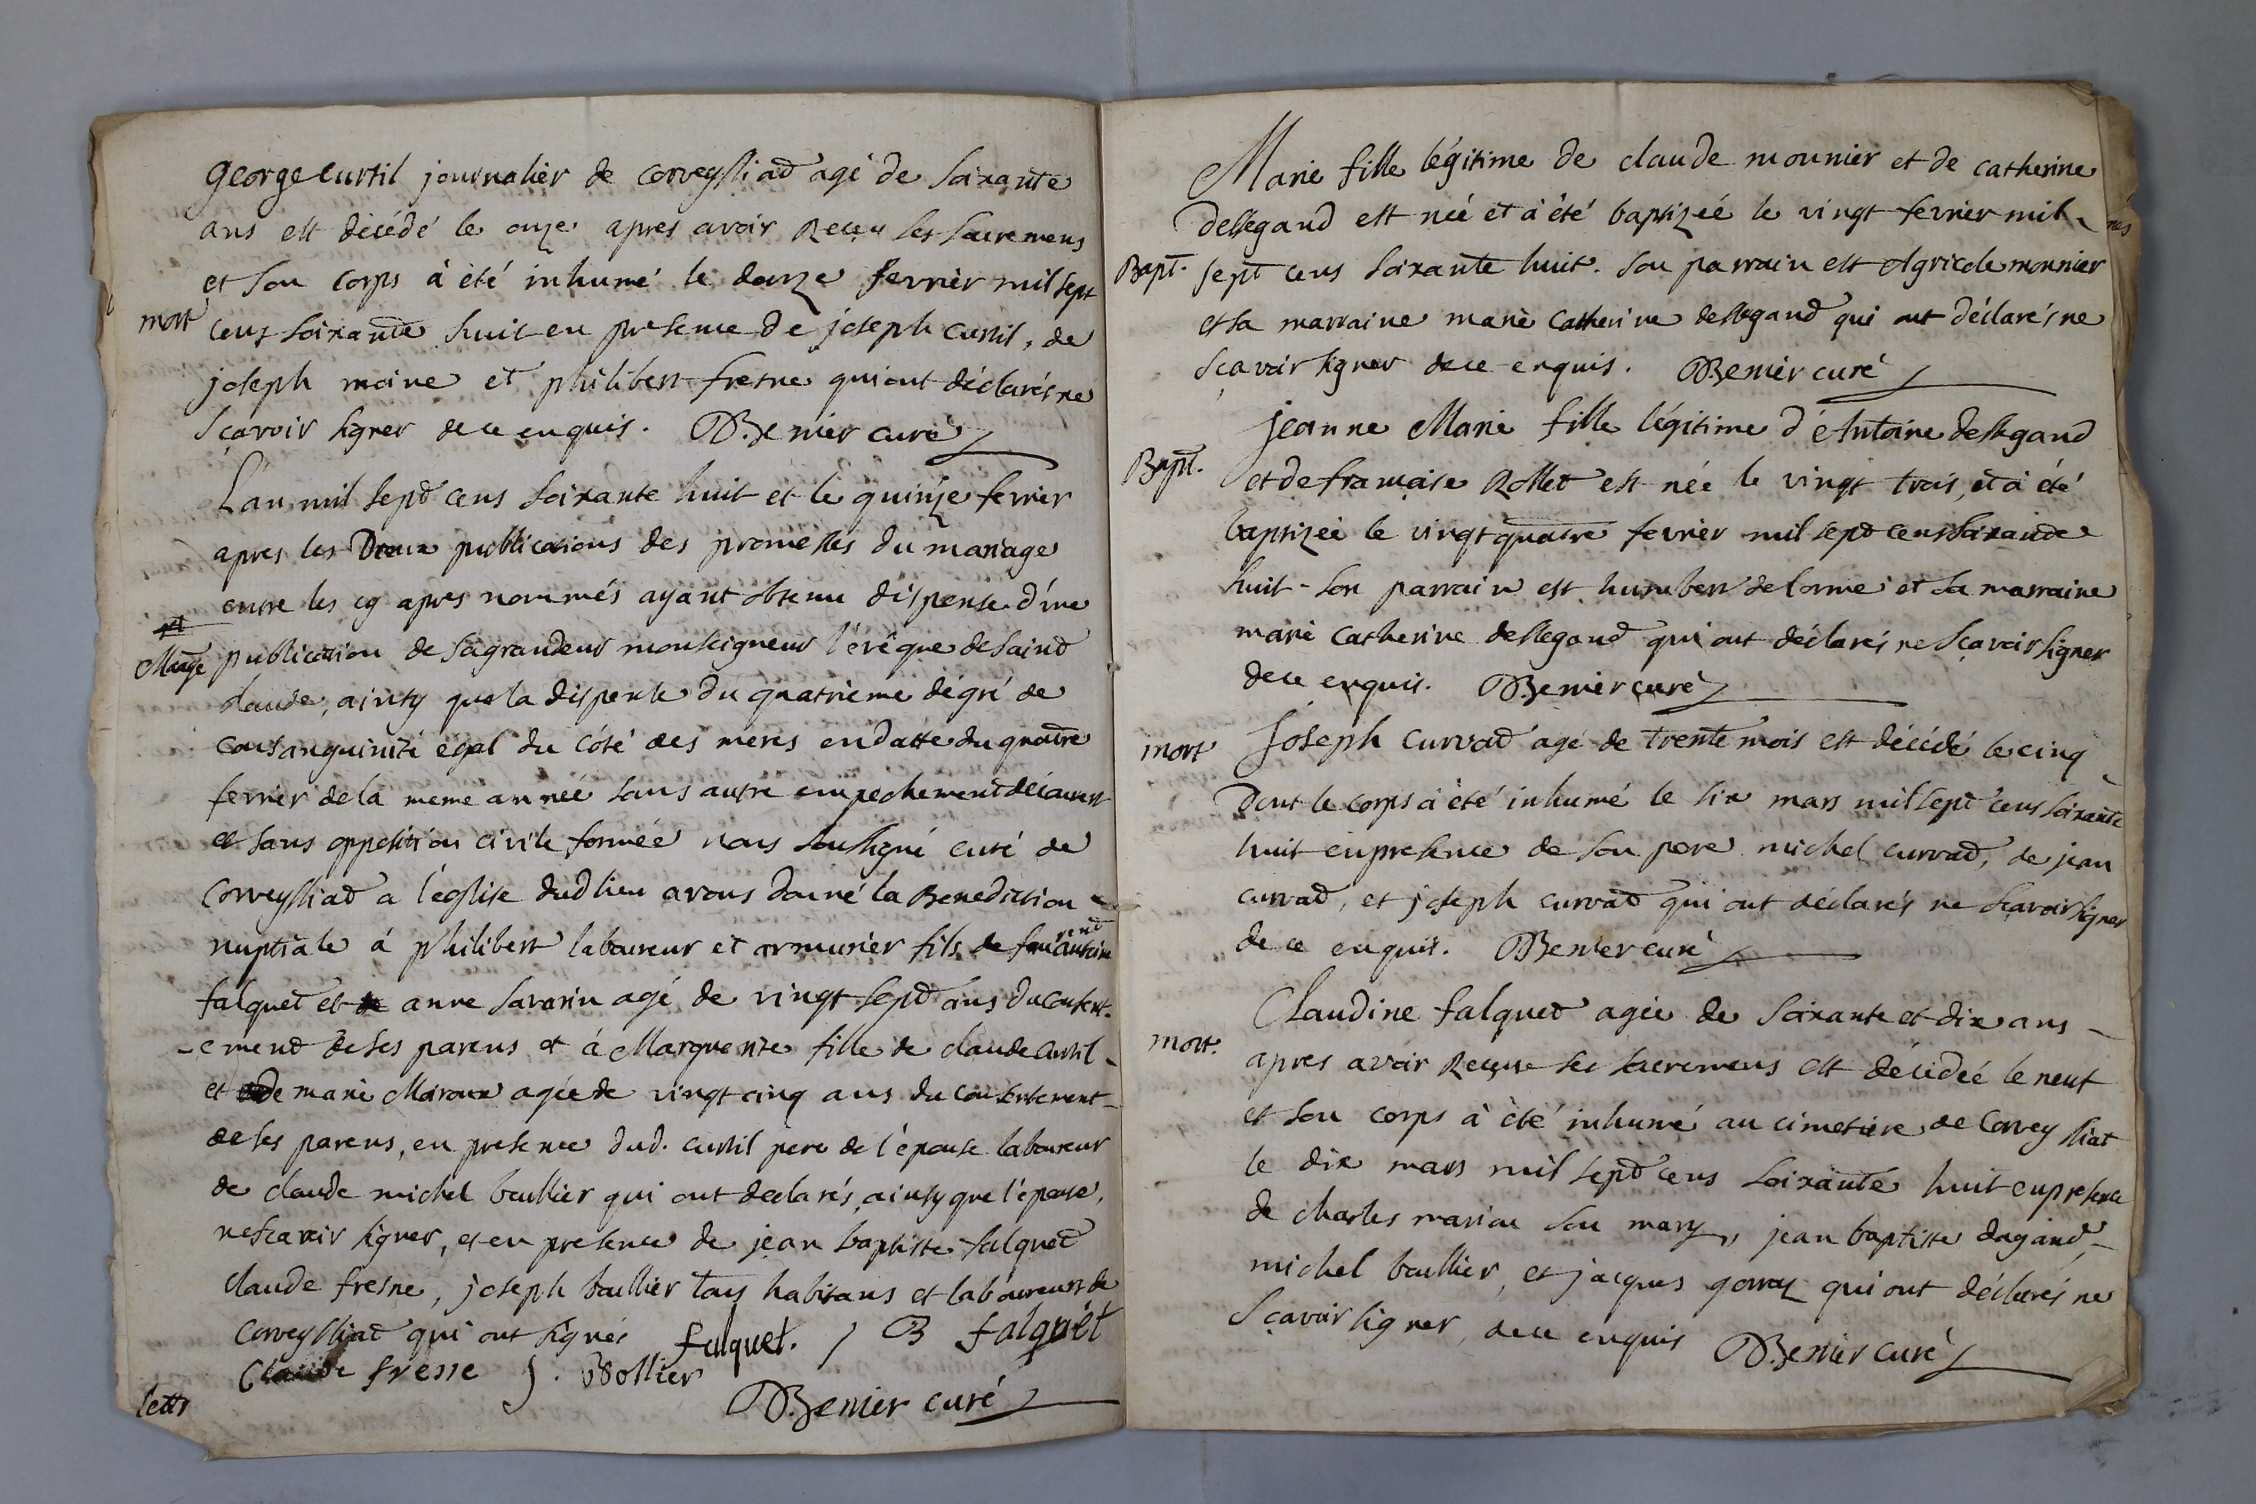 george curtil journalier de corveyssiad agé de soixante
ans est décédé le onze apres avoir Reçeu ses sacremens
et son corps à été inhumé le douze fevrier mil sept
mort
cens soixante huit en presence de joseph curtil, de
joseph moine et philibert fresne qui ont déclarés ne
sçavoir signer de ce enquis. D. Benier curé
L'an mil sept cens soixante huit et le quinze fevrier
apres les Deux publications des promesses du mariage
entre les cy apres nommés ayant obtenu dispense d'une
Mariage
publication de sa grandeur monseigneur l'évêque de saint
claude, ainsy que la dispense du quatrieme dégré de
consanguinité égal du côté des meres en datte du quatre
fevrier de la meme année sans autre empechement décauvert
et sans opposition civile formée nous soussigné curé de
Corveyssiad a l'église dud lieu avons donné la Benediction
nuptiale à philibert laboureur et armurier fils de feu antoine
falquet et de anne savarin agé de vingt sept ans du consent-
-ement de ses parens et à Marguerite fille de claude curtil
et de marie Maroux agée de vingt cinq ans du consentement
de ses parens, en presence dud. curtil pere de l'épouse laboureur
de claude michel baullier qui ont declarés, ainsy que l'épouse,
ne scavoir signer, et en presence de jean baptiste falquet
claude fresne, joseph baullier tous habitans et laboureurs de
Corveyssiad qui ont signés falquet. J B falquet
Claude fresne J. Bollier
D. Benier curé
lettr
Marie fille légitime de claude mounier et de catherine
dessegand est née et à été baptizéé le vingt fevrier mil
Bapt.
sept cens soixante huit. son parrain est Agricole monnier
et sa marraine marie Catherine dessegand qui ont déclarés ne
sçavoir signer de ce enquis. D. Benier curé
jeanne Marie fille légitime d'Antoine dessegand
Bapt.
et de françoise Rollet est née le vingt trois, et à été
baptizéé le vingt quatre fevrier mil sept cens soixante
huit - son parrain est humbert delorme et sa marraine
marie Catherine dessegand qui ont déclarés ne sçavoir signer
de ce enquis. D. Benier curé
mort
Joseph curvad agé de trente mois est décédé le cinq
Dont le corps à été inhumé le six mars mil sept cens soixante
huit en presence de son pere michel curvad, de jean
curvad, et joseph curvad qui ont déclarés ne sçavoir signer
de ce enquis. D. Benier curé
Claudine falquet agée de soixante et dix ans
mort.
apres avoir Reçeu ses sacremens est décédéé le neuf
et son corps à été inhumé au cimetiere de Corveyssiat
le dix mars mil sept cens soixante huit en presence
de charles marion son mary, jean baptiste dagand,
michel baullier, et jacques qui ont déclarés ne
sçavoir signer, de ce enquis D. Benier curé